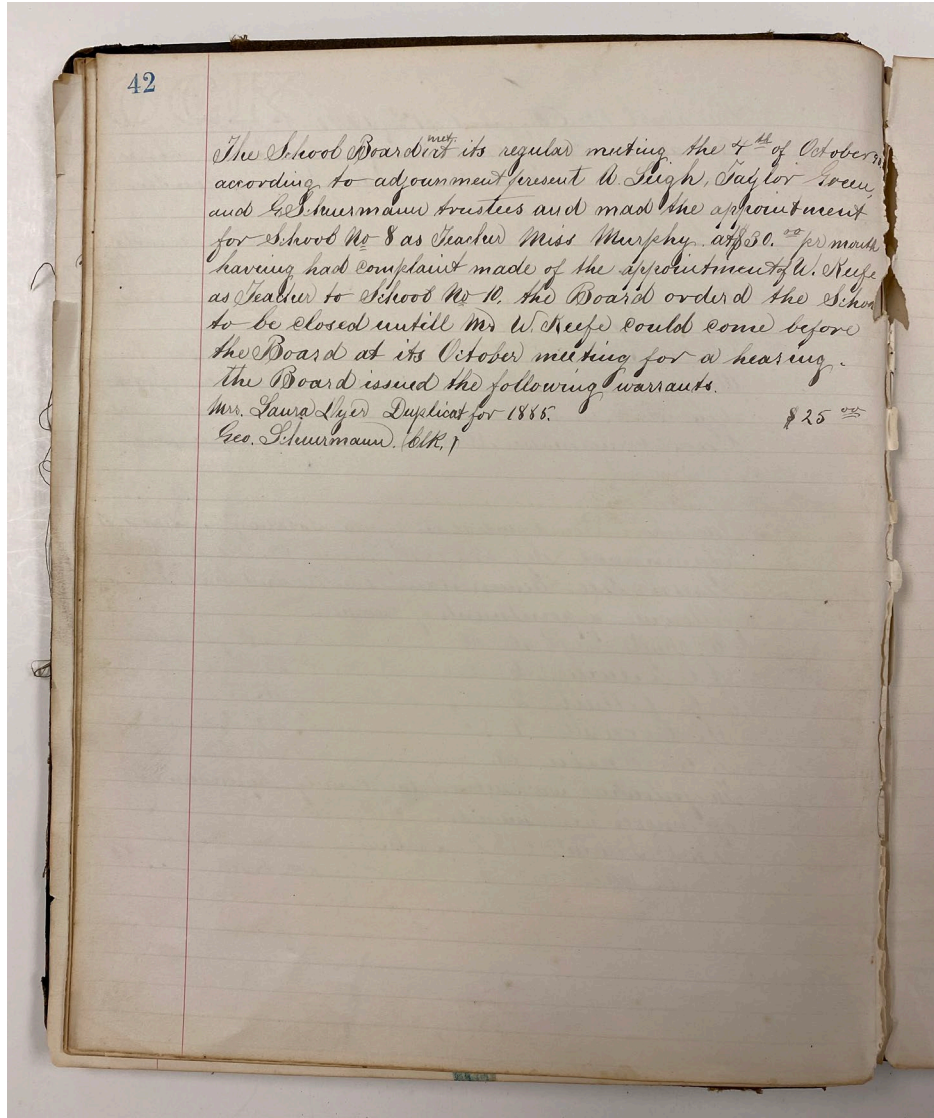 42
The School Board met at its regular meeting the 4th of October 90
according to adjournment present W. Leigh, Taylor Green,
and G Schuurmann trustees and mad the appointment
for School No 8 as Teacher Miss Murphy. at $30.00 pr month
haveing had complaint made of the appointment of W. Keefe
as Teacher to School No 10. the Board orderd the School
to be closed untill Mr W. Keefe could come before
the Board at its October meeting for a hearing.
the Board issued the following warrants.
Mrs. Laura Dyer Duplicat for 1885. $25 00
Geo. Schuurmann. (Clk.)